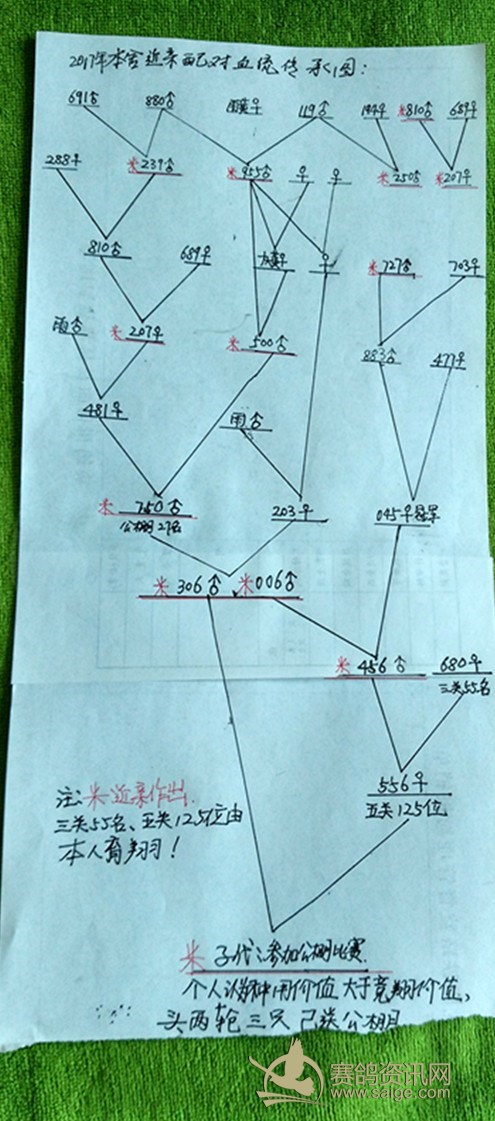 2017年本舍近亲配对血统传承图：
691♂ 880♂ 119♂ 144♀ 米810♂ 689♀
288♀ 米239♂ 米955♂ ♀ ♀ 米250♂ 米207♀
810♂ 689♀ 米727♂ 703♀
雨♂ 米207♀ 米500♂ 883♂ 477♀
481♀ 雨♂
米750♂ 203♀ 045♀
公棚27名
米306♂ 米006♂
米456♂ 680♀
三关55名
556♀
五关125位
注：米近亲作出.
三关55名、五关125位由
本人育翔！
米子代：参加公棚比赛.
个人认为种用价值大于竞翔价值,
头两轮三只已送公棚
赛鸽资讯网
www.saige.com